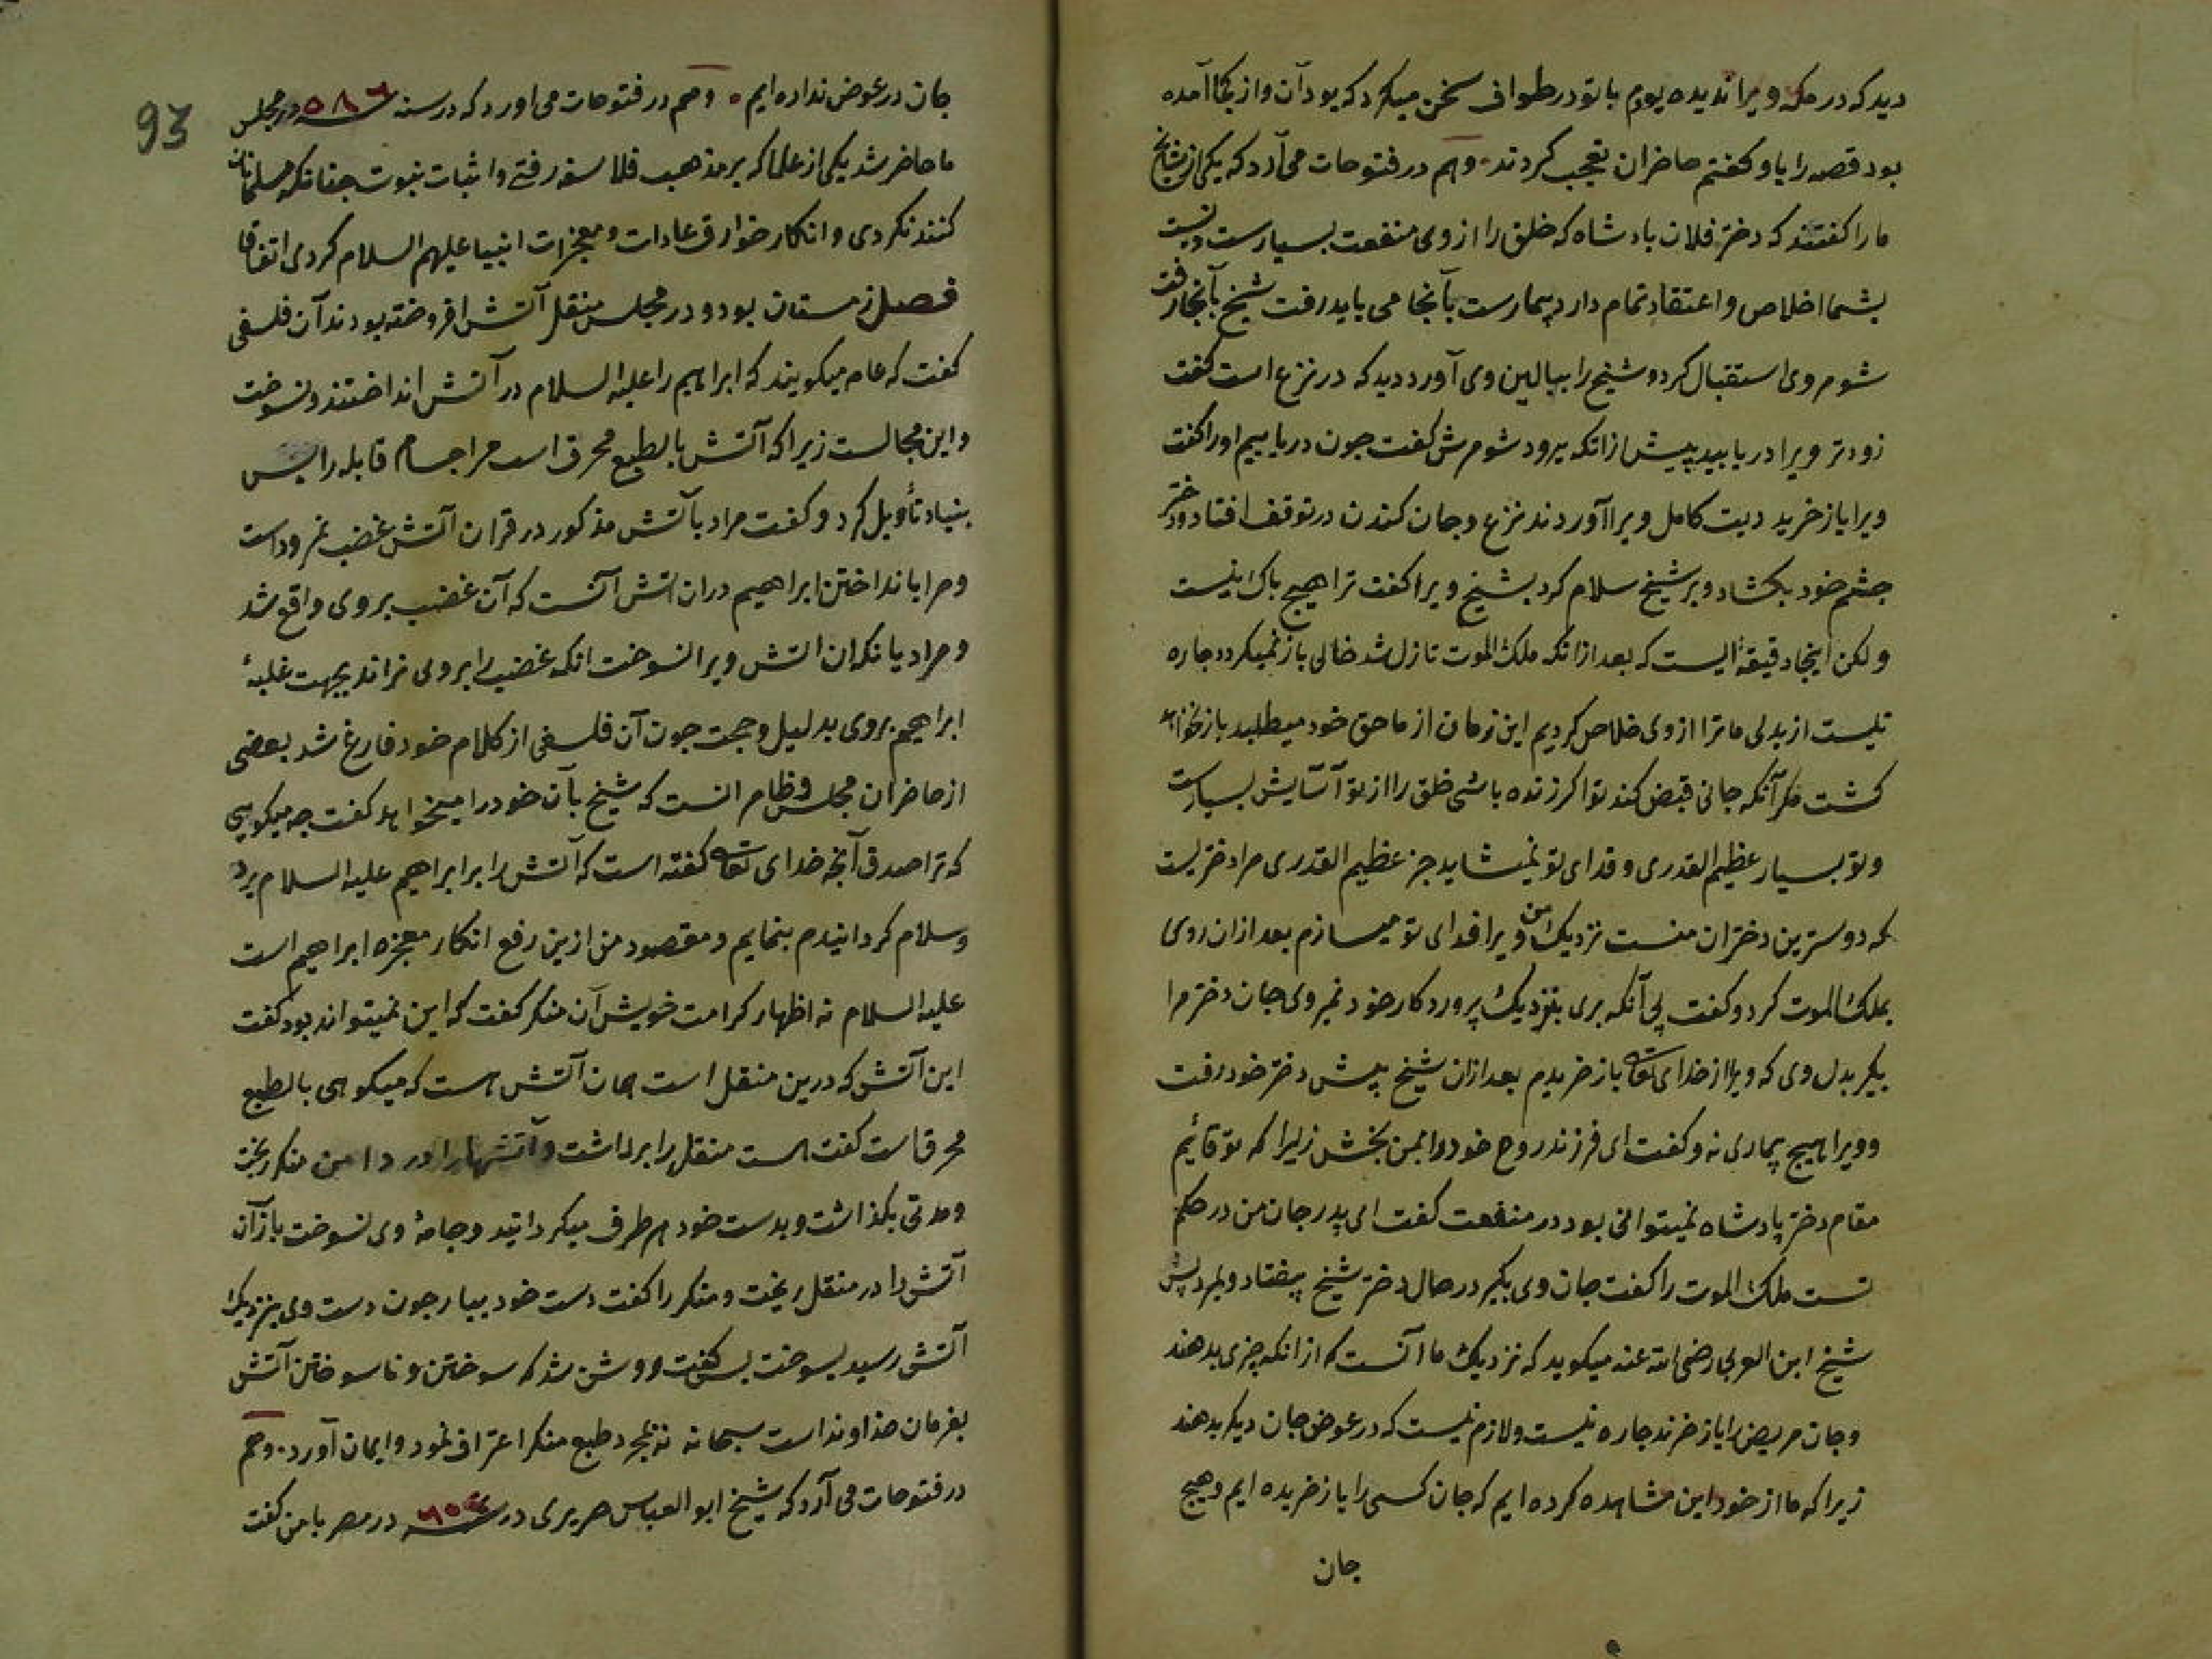 دید که در مکه ویرا ندیده بودم با تو در طواف سخن میکرد که بود آن و از کجا آمده
بود قصه را باو کفتم حاضران تعجب کردند. وهم در فتوحات می آرد که یکی از مشایخ
ما را کفتند که دختر فلان بادشاه که خلق را از وی منفعت بسیارست و نسبت
بشما اخلاص و اعتقاد تمام دارد بیمارست بآنجا می باید رفت شیخ بآنجا رفت
شوهر وی استقبال کرد و شیخ را ببالین وی آورد دید که در نزع است کفت
زودتر ویرا دریابید پیش ازانکه برود شوهرش کفت جون دریابیم اورا کفت
ویرا باز خرید دیت کامل ویرا آوردند نزع و جان کندن در توقف افتاد و دختر
جشم خود بکشاد و بر شیخ سلام کرد شیخ ویرا کفت ترا هیچ باک نیست
ولکن اینجا دقیقۀ ایست که بعد ازانکه ملک الموت نازل شد خالی باز نمیکردد جاره
نیست از بدلی ما ترا از وی خلاص کردیم این زمان از ما حق خود میطلبد باز نخواهد
کشت مکر آنکه جانی قبض کند تو اکر زنده باشی خلق را از تو آسایش بسیارست
و تو بسیار عظیم القدری و فدای تو نمیشاید جز عظیم القدری مرا دختریست
که دوسترین دختران منست نزدیک من ویرا فدای تو میسازم بعد ازان روی
بملک الموت کرد و کفت بی آنکه بری بنزدیک پروردکار خود نمیروی جان دختر مرا
بکیر بدل وی که ویرا از خدای تعالی باز خریدم بعد ازان شیخ پیش دختر خود رفت
و ویرا هیچ بیماری نه و کفت ای فرزند روح خود را بمن بخش زیرا که تو قائیم
مقام دختر پادشاه نمیتوانی بود در منفعت کفت ای پدر جان من در حکم
تست ملک الموت را کفت جان وی بکیر در حال دختر شیخ بیفتاد و بمرد پس
شیخ ابن العربی رضی الله عنه میکوید که نزدیک ما آنست که ازانکه چیزی بدهند
و جان مریض را باز خرند جاره نیست و لازم نیست که در عوض جان دیکر بدهند
زیرا که ما از خود این مشاهده کرده ایم که جان کسی را باز خریده ایم و هیچ
جان
93
جان در عوض نداده ایم. وهم در فتوحات می اورد که در سنه ٥٨٦ در مجلس
ما حاضر شد یکی از علما که بر مذهب فلاسفه رفتی و اثبات نبوت جنانکه مسلمانان
کنند نکردی و انکار خوارق عادات و معجزات انبیا علیهم السلام کردی اتفاقا
فصل زمستان بود و در مجلس منقل آتش افروخته بودند آن فلسفی
کفت که عام میکویند که ابراهیم را علیه السلام در آتش انداختند و نسوخت
و این محالست زیرا که آتش بالطبع محرق است مر اجسام قابله را پس
بنیاد تأویل کرد و کفت مراد بآتش مذکور در قران آتش غضب نمرود است
و مراد بانداختن ابراهیم دران اتش آنست که آن غضب بر وی واقع شد
و مراد بانکه ان اتش ویرا نسوخت انکه غضب را بر وی نراند بجهت غلبۀ
ابراهیم بر وی بدلیل و حجت جون آن فلسفی از کلام خود فارغ شد بعضی
از حاضران مجلس و ظاهر انست که شیخ بآن خود را میخواهد کفت جه میکویی
که ترا صدق آنچه خدای تعالی کفته است که آتش را بر ابراهیم علیه السلام برد
و سلام کردانیدم بنمایم و مقصود من ازین رفع انکار معجزه ابراهیم است
علیه السلام نه اظهار کرامت خویش آن منکر کفت که این نمیتواند بود کفت
این آتش که درین منقل است همان آتش هست که میکویی بالطبع
محرق است کفت هست منقل را برداشت و آتشها را در دامن منکر ریخت
و مدتی بکذاشت و بدست خود هر طرف میکردانید و جامۀ وی نسوخت باز آن
آتش را در منقل ریخت و منکر را کفت دست خود بیار جون دست وی بنزدیک
آتش رسید بسوخت پس کفت روشن شد که سوختن و ناسوختن آتش
بفرمان خداوند است سبحانه نه بمجرد طبع منکر اعتراف نمود و ایمان آورد. وهم
در فتوحات می آرد که شیخ ابو العباس حریری در سنه در مصر با من کفت